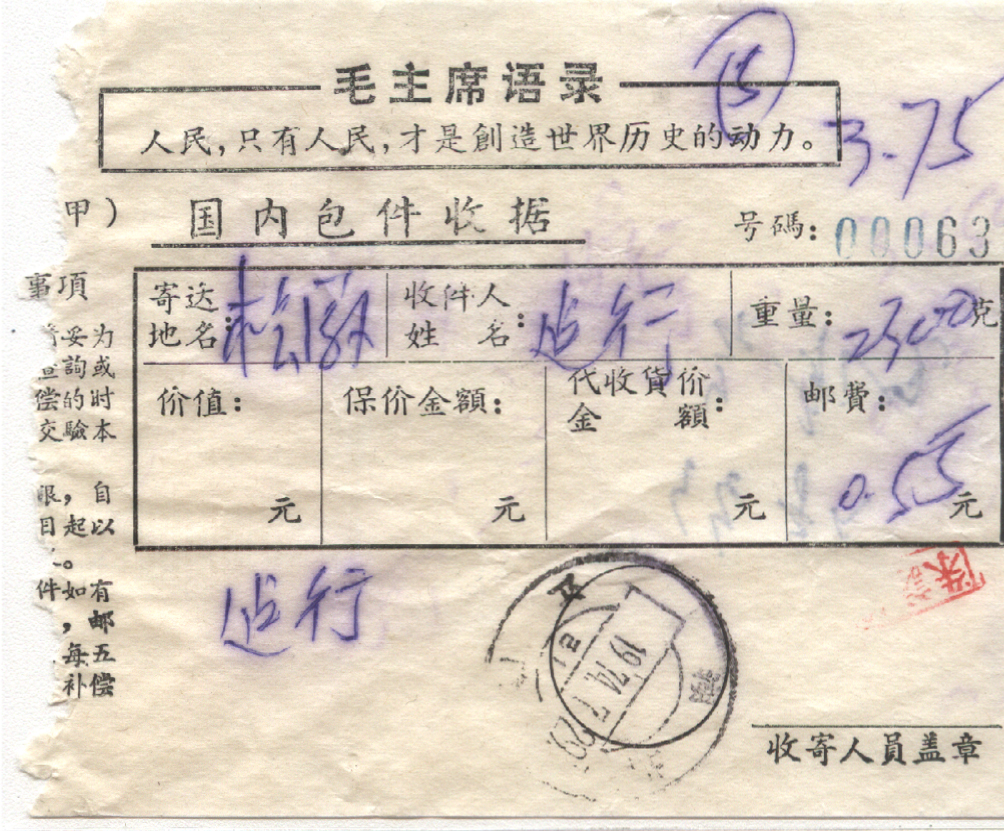 毛主席语录
15
人民,只有人民,才是創造世界历史的动力。
3.75
甲)
国内包件收据
号碼: 00063
事項
寄达地名:
收件人姓名:
重量: 克
妥为
詢或
偿的时
交驗本
价值: 元
保价金額: 元
代收貨价金額: 元
邮費: 0.55 元
限,自
日起以
。
件如有
,邮
每五
补偿
1974.7
收寄人员盖章